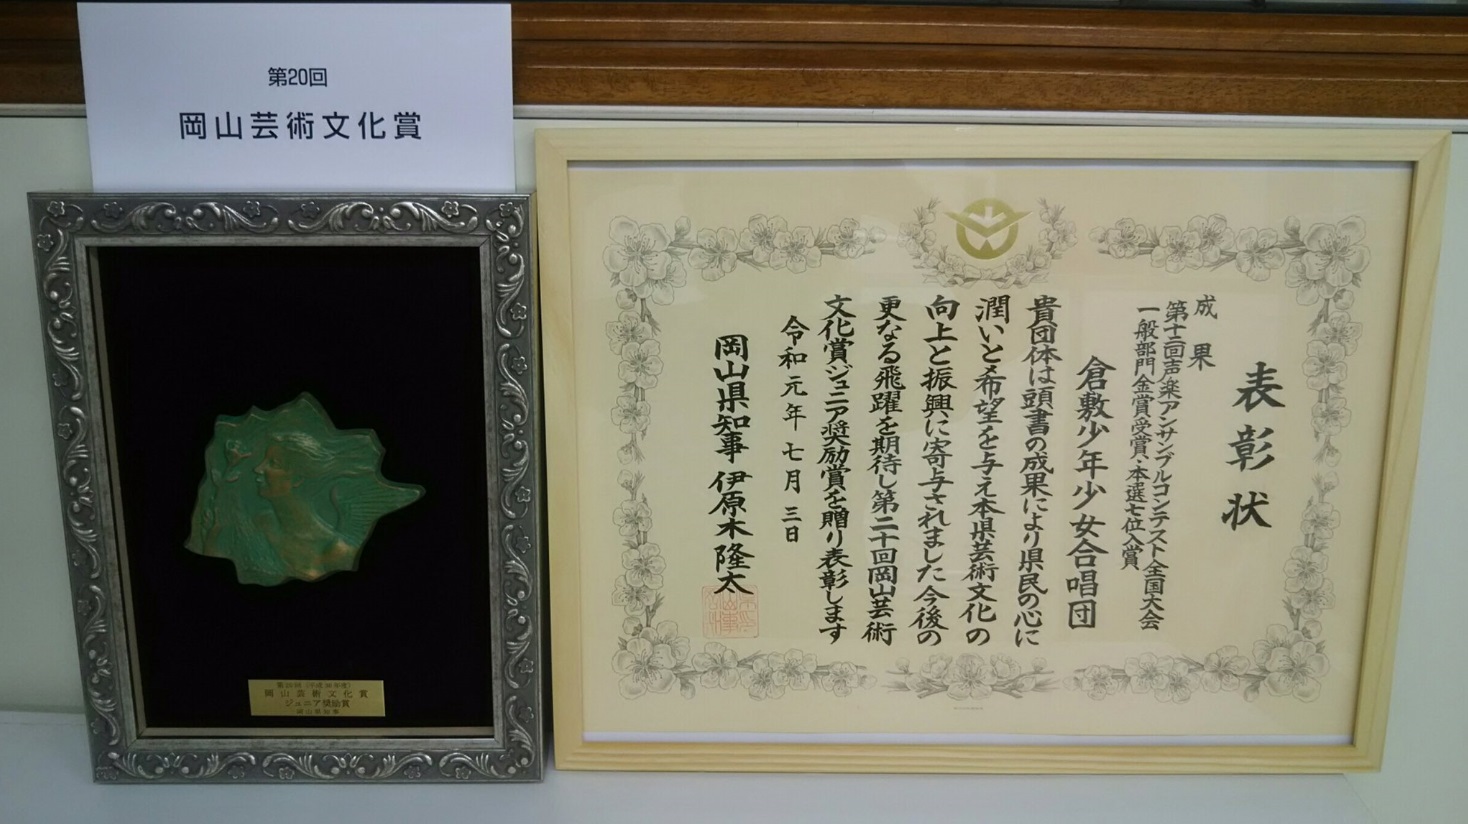 第20回
岡山芸術文化賞
表彰状
成果
第十一回声楽アンサンブルコンテスト全国大会
一般部門金賞受賞・本選七位入賞
倉敷少年少女合唱団
貴団体は頭書の成果により県民の心に
潤いと希望を与え本県芸術文化の
向上と振興に寄与されました今後の
更なる飛躍を期待し第二十回岡山芸術
文化賞ジュニア奨励賞を贈り表彰します
令和元年七月三日
岡山県知事 伊原木隆太
第20回(平成30年度)
岡山芸術文化賞
ジュニア奨励賞
岡山県知事